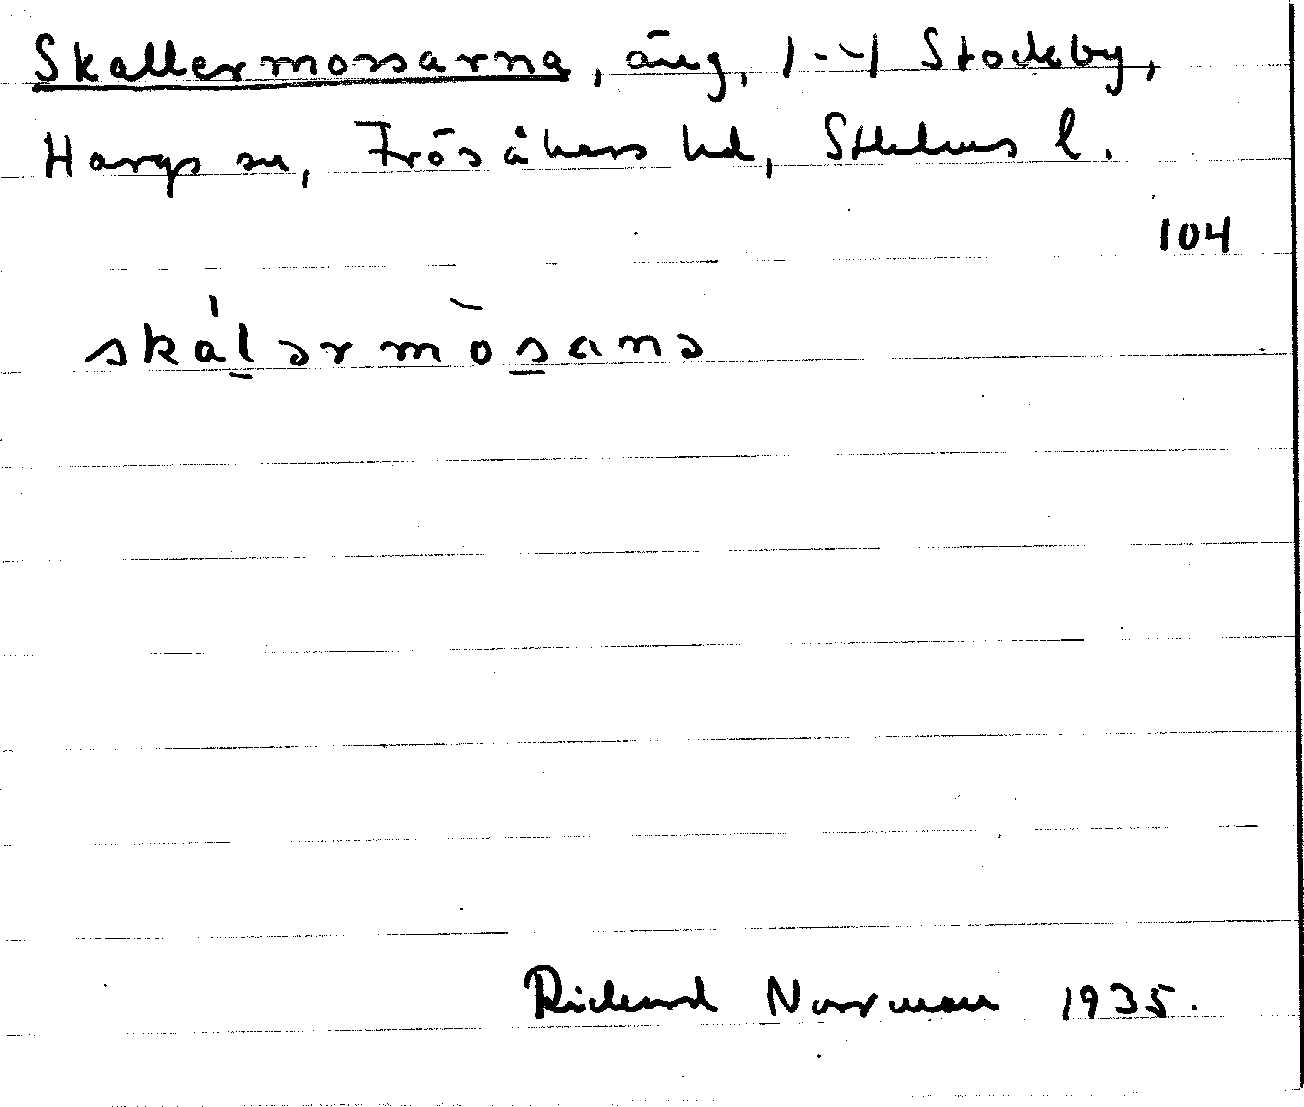 Skallermossarna, äng, 1-4 Stockby,
Hargs sn, Frösåkers hd, Sthlms l.
104
skál̠ərmòs̠anə
Richard Norrman 1935.